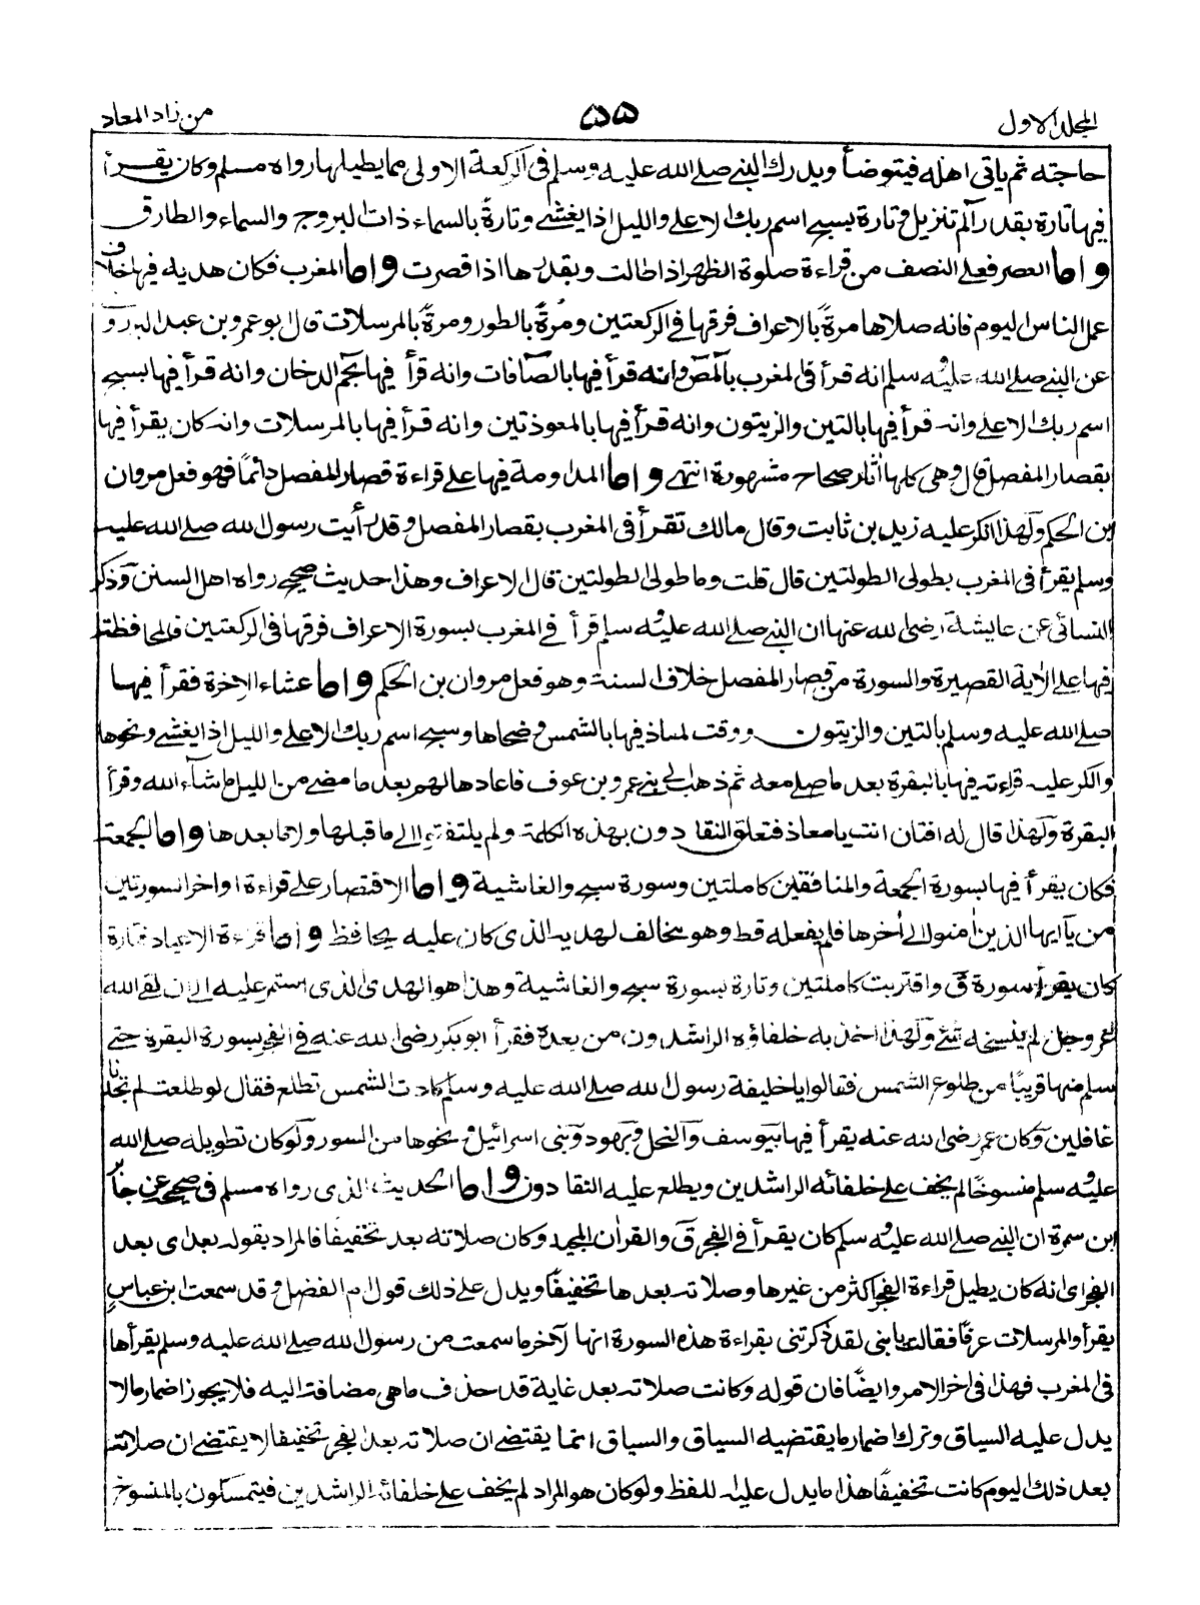 المجلد الاول
۵۵
من زاد المعاد
حاجته ثم ياتى اهله فيتوضأ ويدرك النبى صلى الله عليه وسلم فى الركعة الاولى مما يطيلها رواه مسلم وكان يقرأ
فيها تارة بقدر الٓم تنزيل وتارة بسبح اسم ربك الاعلى والليل اذا يغشى وتارةً بالسماء ذات البروج والسماء والطارق
واما العصر فعلى النصف من قراءة صلوة الظهر اذا طالت وبقدرها اذا قصرت واما المغرب فكان هديه فيها خلاف
عمل الناس اليوم فانه صلاها مرةً بالاعراف فرقها فى الركعتين ومُرةً بالطور ومرةً بالمرسلات قال ابو عمرو بن عبد البر رو
عن النبى صلى الله عليه وسلم انه قرأ فى المغرب بالٓمٓصٓ وانه قرأ فيها بالصٓافات وانه قرأ فيها بحٓم الدخان وانه قرأ فيها بسبح
اسم ربك الاعلى وانه قرأ فيها بالتين والزيتون وانه قرأ فيها بالمعوذتين وانه قرأ فيها بالمرسلات وانه كان يقرأ فيها
بقصار المفصل قال وهى كلها اثار صحاح مشهورة انتهى واما المداومة فيها على قراءة قصار المفصل دائمًا فهو فعل مروان
بن الحكم ولهذا انكر عليه زيد بن ثابت وقال مالك تقرأ فى المغرب بقصار المفصل وقد رأيت رسول الله صلى الله عليه
وسلم يقرأ فى المغرب بطولى الطولتين قال قلت وما طولى الطولتين قال الاعراف وهذا حديث صحيح رواه اهل السنن وذكر
النسائى عن عايشة رضى الله عنها ان النبى صلى الله عليه وسلم قرأ فى المغرب بسورة الاعراف فرقها فى الركعتين فالمحافظة
فيها على الاية القصيرة والسورة من قصار المفصل خلاف السنة وهو فعل مروان بن الحكم واما عشاء الاخرة فقرأ فيها
صلى الله عليه وسلم بالتين والزيتون ووقت لمعاذ فيها بالشمس وضحاها وسبح اسم ربك الاعلى والليل اذا يغشى ونحوها
وانكر عليه قراءته فيها بالبقرة بعد ما صلى معه ثم ذهب الى بنى عمرو بن عوف فاعادها لهم بعد ما مضى من الليل ما شآء الله وقرأ
البقرة ولهذا قال له افتان انت يا معاذ فتعلق النقادون بهذه الكلمة ولم يلتفتوا الى ما قبلها ولا ما بعدها واما الجمعة
فكان يقرأ فيها بسورة الجمعة والمنافقين كاملتين وسورة سبح والغاشية واما الاقتصار على قراءة اواخر السورتين
من يآايها الذين امنوا الى اٰخرها فلم يفعله قط وهو مخالف لهديه الذى كان عليه يحافظ واما قراءة الاعياد فتارة
كان يقرأ سورة قٓ واقتربت كاملتين وتارة بسورة سبح والغاشية وهذا هو الهدى الذى استمر عليه الى ان لقى الله
عز وجل لم ينسخه شئ ولهذا اخذ به خلفاؤه الراشدون من بعده فقرأ ابو بكر رضى الله عنه فى الفجر بسورة البقرة حتى
سلم منها قريبًا من طلوع الشمس فقالوا يا خليفة رسول الله صلى الله عليه وسلم كادت الشمس تطلع فقال لو طلعت لم تجدنا
غافلين وكان عمر رضى الله عنه يقرأ فيها بيوسف والنحل وبهود وبنى اسرائيل ونحوها من السور ولو كان تطويله صلى الله
عليه وسلم منسوخًا لم يخف على خلفائه الراشدين ويطلع عليه النقادون واما الحديث الذى رواه مسلم فى صحيحه عن جابر
ابن سمرة ان النبى صلى الله عليه وسلم كان يقرأ فى الفجر قٓ والقراٰن المجيد وكان صلاته بعد تخفيفًا فالمراد بقوله بعد اى بعد
الفجر اى انه كان يطيل قراءة الفجر اكثر من غيرها وصلاته بعدها تخفيفًا ويدل على ذلك قول ام الفضل وقد سمعت ابن عباس
يقرأ والمرسلات عرفًا فقالت يا بنى لقد ذكرتنى بقراءة هذه السورة انها لاٰخر ما سمعت من رسول الله صلى الله عليه وسلم يقرأها
فى المغرب فهذا فى اخر الامر وايضًا فان قوله وكانت صلاته بعد غاية قد حذف ما هى مضافة اليه فلا يجوز اضمار ما لا
يدل عليه السياق وترك اضمار ما يقتضيه السياق والسياق انما يقتضى ان صلاته بعد الفجر تخفيفا لا يقتضى ان صلاته
بعد ذلك اليوم كانت تخفيفًا هذا ما يدل عليه اللفظ ولو كان هو المراد لم يخف على خلفائه الراشدين فيتمسكون بالمنسوخ